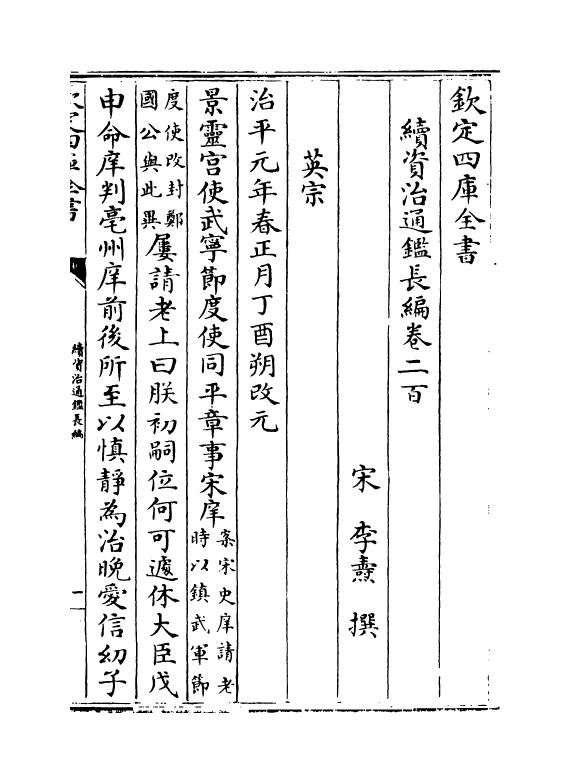 欽定四庫全書
續資治通鑑長編卷二百
宋 李燾 撰
英宗
治平元年春正月丁酉朔改元
景靈宮使武寧節度使同平章事宋庠案宋史庠請老時以鎮武軍節
度使改封鄭國公與此異屢請老上曰朕初嗣位何可遽休大臣戊
申命庠判亳州庠前後所至以慎靜為治晚愛信幼子
續資治通鑑長編
一